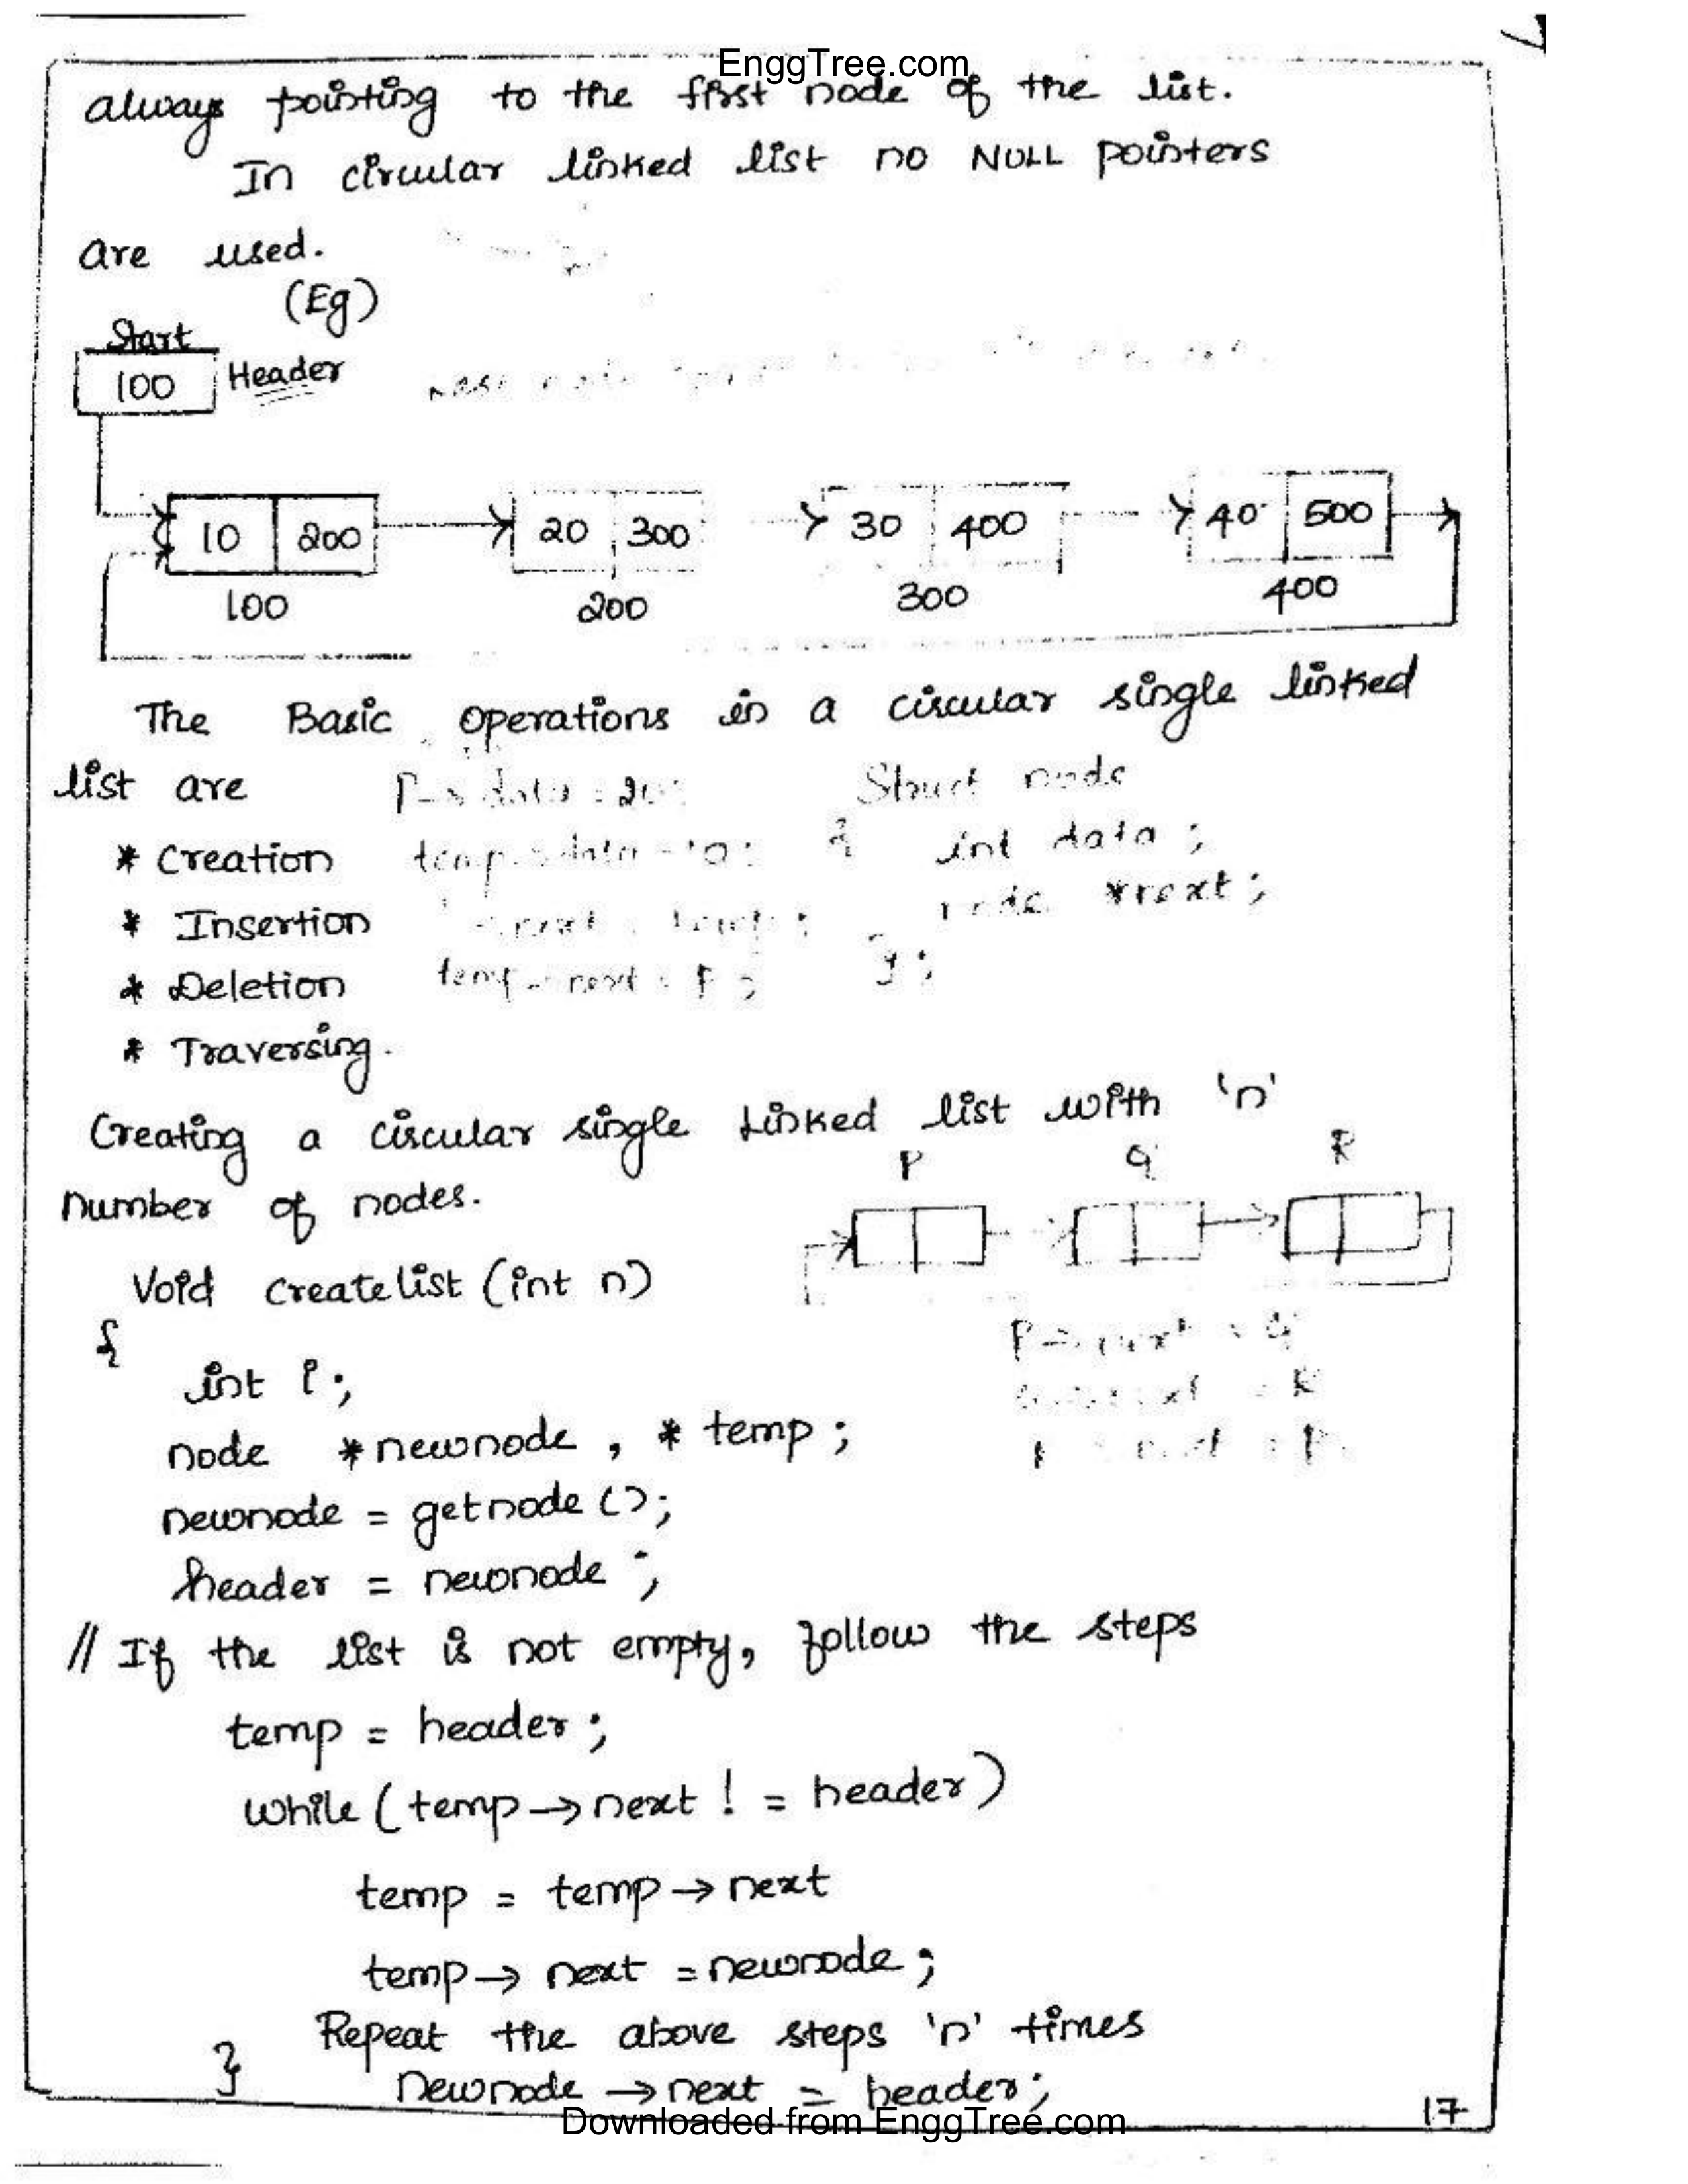 EnggTree.com
always pointing to the first node of the list.
In circular linked list no NULL pointers
are used.
(Eg)
Start
100 Header
10 200 20 300 30 400 40 500
100 200 300 400
The Basic operations in a circular single linked
list are
Struct node
* Creation
int data ;
* Insertion
*next ;
* Deletion
};
* Traversing.
Creating a circular single Linked list with 'n'
P Q R
number of nodes.
Void createlist (int n)
{
int i ;
node *newnode , * temp ;
newnode = getnode () ;
header = newnode ;
// If the list is not empty, follow the steps
temp = header ;
while ( temp → next ! = header )
temp = temp → next
temp → next = newnode ;
Repeat the above steps 'n' times
}
Newnode → next = header ;
Downloaded from EnggTree.com
17